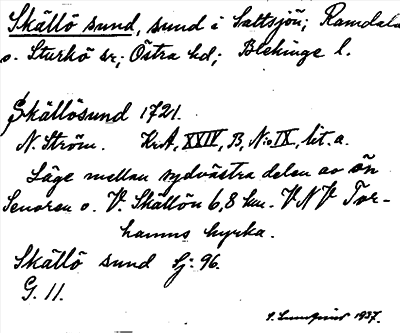 Skällö sund, sund i Saltsjön; Ramdala
o. Sturkö sr; Östra hd; Blekinge l.
Skällösund 1721.
N. Ström. KrA, XXIV, B, N:o IX, lit. a.
Läge mellan sydvästra delen av ön
Senoren o. V. Skällön 6,8 km. VNV Tor-
hamns kyrka.
Skällö sund Sj: 96.
G. 11.
1937.